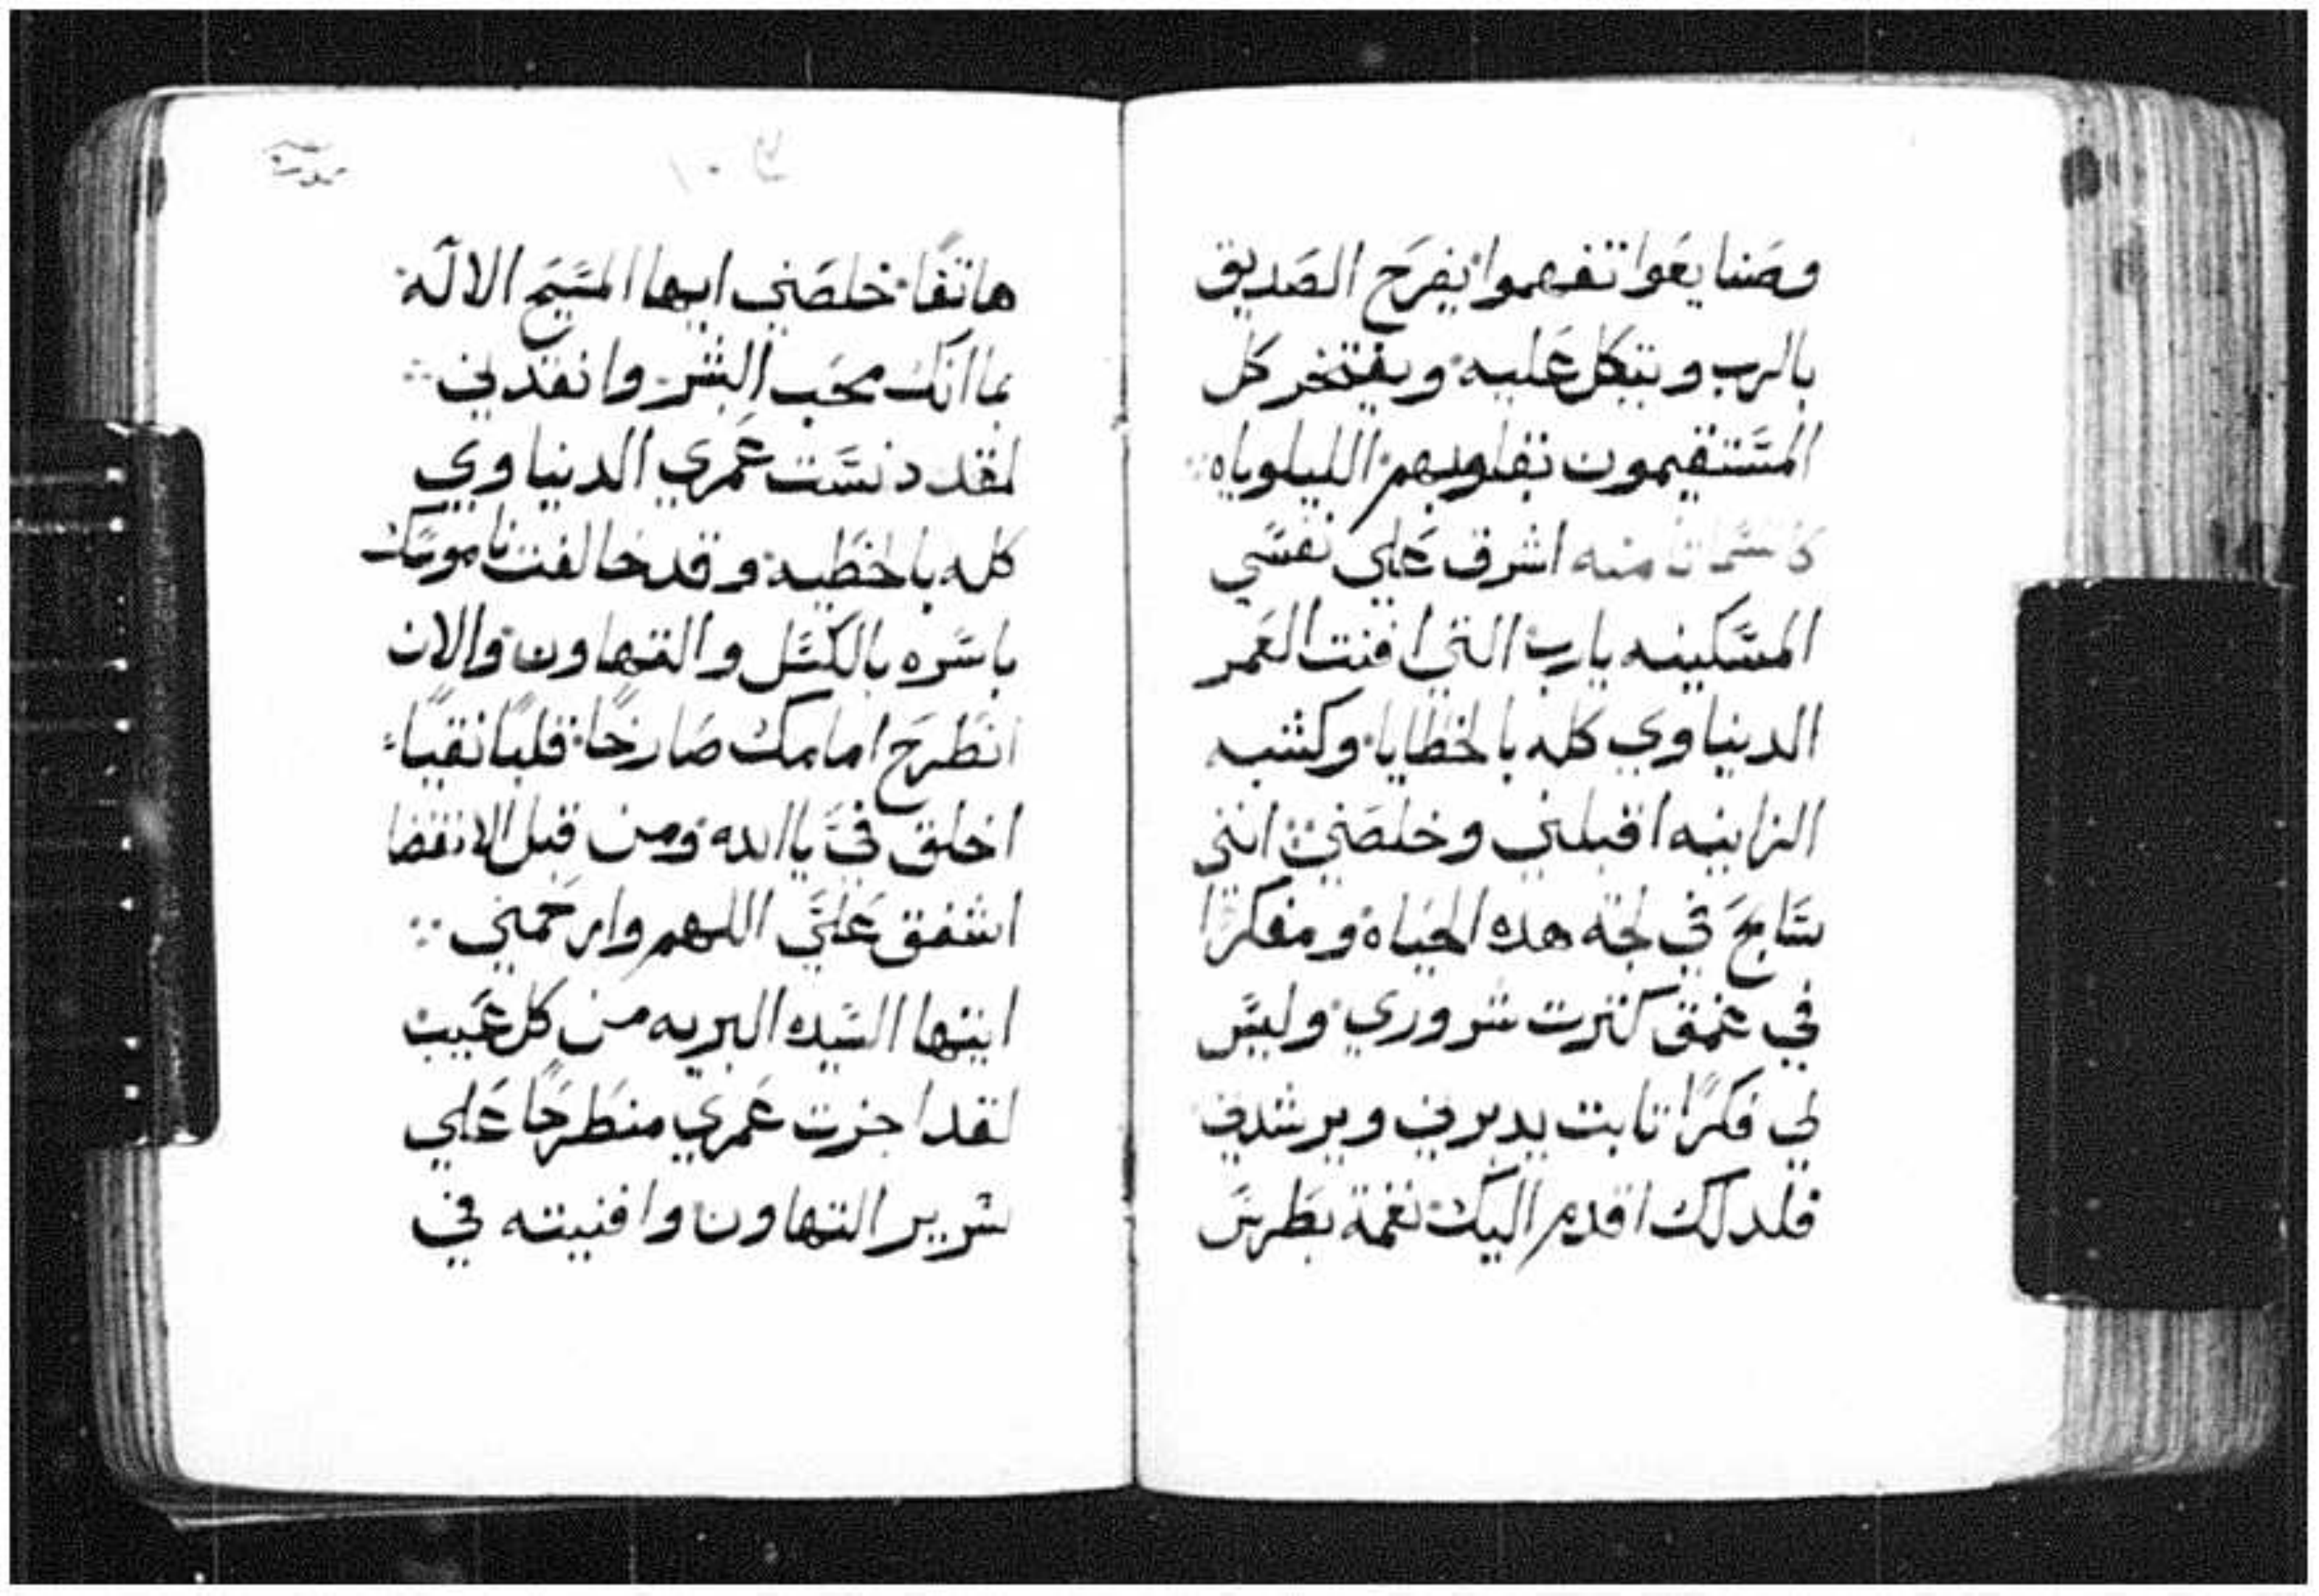 وصنايعوا تفهموا يفرح الصديق
بالرب ويتكل عليه ويفتخر كل
المستقيمون بقلوبهم الليلوياه
منه اشرق علي نفسي
المسكينه يارب التي افنت العمر
الدنياوي كله بالخطايا وكشبه
الزانيه اقبلني وخلصني انني
سابح في لجة هده الحياه ومفكرًا
في عمق كثرت شروري وليس
لي فكرًا تابت يدبرني ويرشدني
فلدلك اقدم اليك نغمة بطرس
هاتفًا خلصني ايها المسيح الاله
بما انك محب البشر وانقدني
لقد دنست عمري الدنياوي
كله بالخطيه وقد خالفت ناموسك
باسره بالكسل والتهاون والان
انطرح امامك صارخًا قلبًا نقيًا
اخلق فيَّ يا الله ومن قبل الانقضا
اشفق عليَّ اللهم وارحمني
ايتها السيده البريه من كل عيب
لقد اجزت عمري منطرحًا علي
سرير التهاون وافنيته في